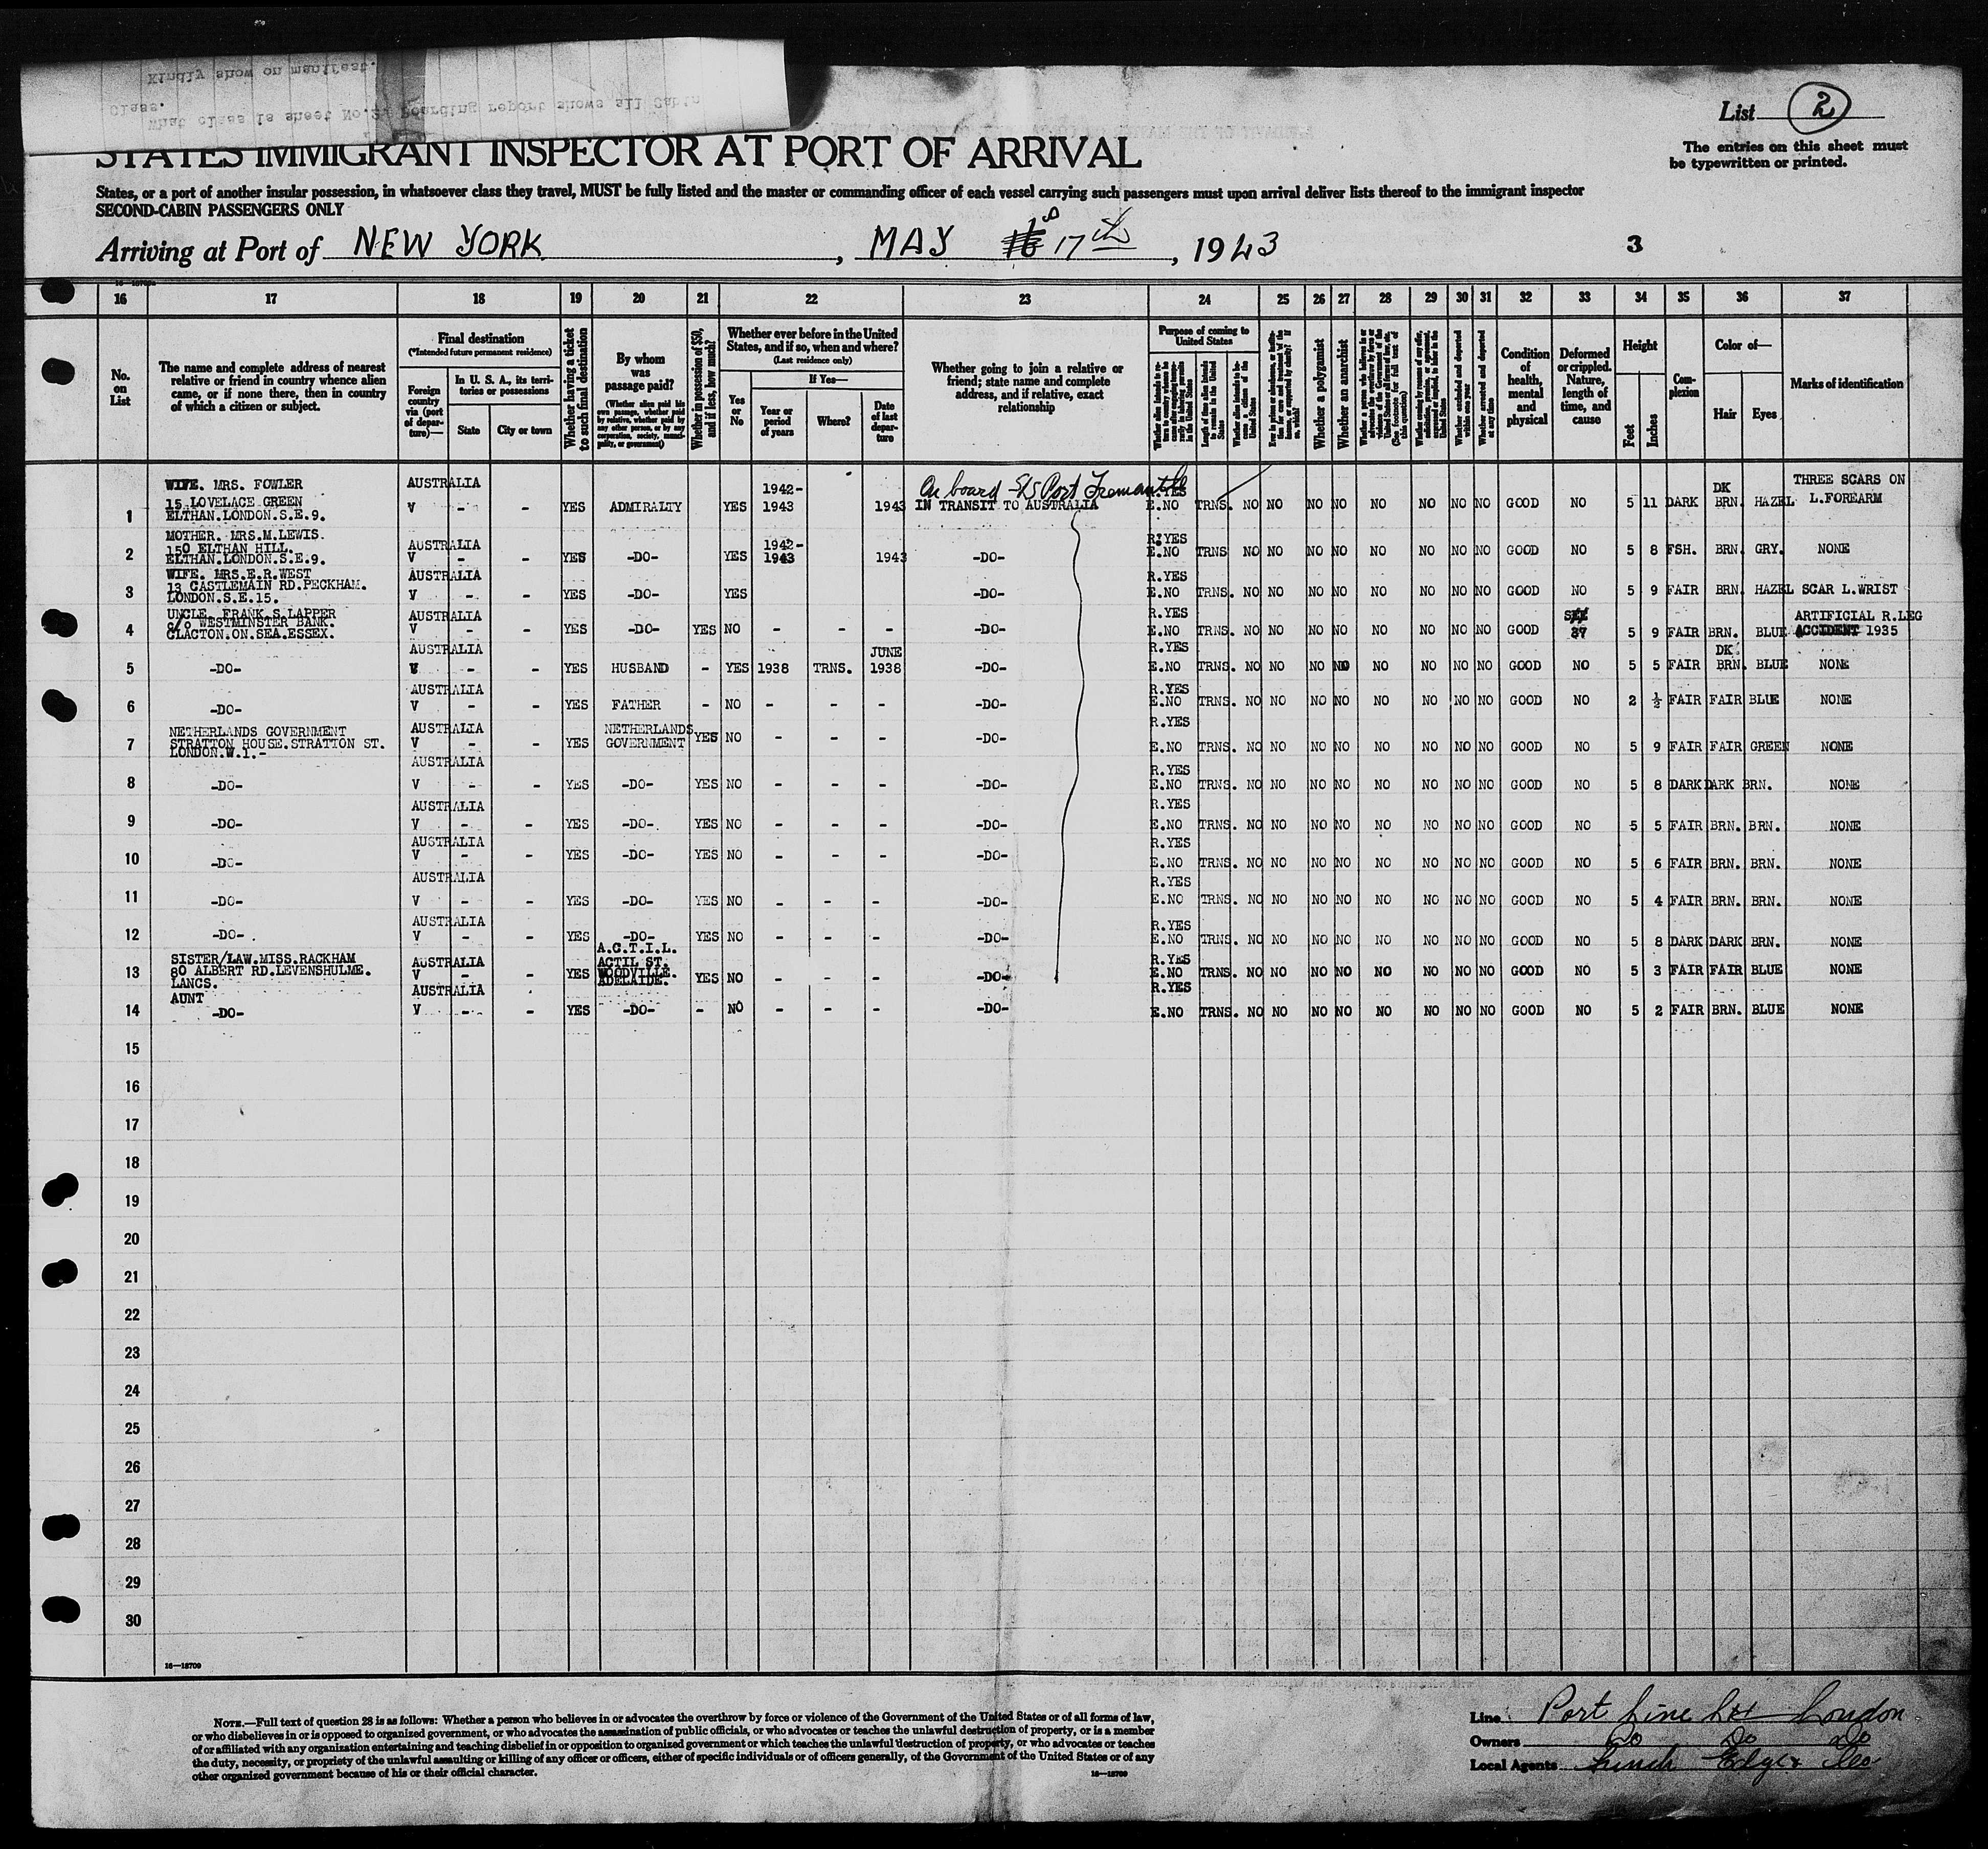 Kindly show on manifest.
What class is sheet No.2. Boarding report shows all Cabin
Class.
List 2
The entries on this sheet must
be typewritten or printed.
STATES IMMIGRANT INSPECTOR AT PORT OF ARRIVAL
States, or a port of another insular possession, in whatsoever class they travel, MUST be fully listed and the master or commanding officer of each vessel carrying such passengers must upon arrival deliver lists thereof to the immigrant inspector
SECOND-CABIN PASSENGERS ONLY
Arriving at Port of NEW YORK, MAY 17th, 1943
3
16 17 18 19 20 21 22 23 24 25 26 27 28 29 30 31 32 33 34 35 36 37
No. on List
The name and complete address of nearest
relative or friend in country whence alien
came, or if none there, then in country
of which a citizen or subject.
Final destination
(*Intended future permanent residence)
Foreign country via (port of departure)—
In U. S. A., its territories or possessions
State
City or town
Whether having a ticket to such final destination
By whom was passage paid?
(Whether alien paid his own passage, whether paid by relative, whether paid by any other person, or by any corporation, society, municipality, or government)
Whether in possession of $50, and if less, how much?
Whether ever before in the United
States, and if so, when and where?
(Last residence only)
If Yes—
Yes or No
Year or period of years
Where?
Date of last departure
Whether going to join a relative or
friend; state name and complete
address, and if relative, exact
relationship
Purpose of coming to United States
Length of time alien intends to remain in the United States
Whether alien intends to become a citizen of the United States
Whether a polygamist
Whether an anarchist
Whether excluded and deported within one year
Whether arrested and deported at any time
Condition of health, mental and physical
Deformed or crippled. Nature, length of time, and cause
Height
Feet
Inches
Complexion
Color of—
Hair
Eyes
Marks of identification
On board S/S Port Fremantle
1 WIFE. MRS. FOWLER 15 LOVELACE GREEN ELTHAN.LONDON.S.E.9. AUSTRALIA V - - YES ADMIRALTY YES 1942-1943 1943 IN TRANSIT TO AUSTRALIA R.YES E.NO TRNS. NO NO NO NO NO NO NO NO GOOD NO 5 11 DARK DK BRN. HAZEL THREE SCARS ON L.FOREARM
2 MOTHER. MRS.M.LEWIS. 150 ELTHAN HILL. ELTHAN.LONDON.S.E.9. AUSTRALIA V - - YES -DO- YES 1942-1943 1943 -DO- R.YES E.NO TRNS NO NO NO NO NO NO NO NO GOOD NO 5 8 FSH. BRN. GRY. NONE
3 WIFE. MRS.E.R.WEST 13 CASTLEMAIN RD.PECKHAM. LONDON.S.E.15. AUSTRALIA V - - YES -DO- YES -DO- R.YES E.NO TRNS. NO NO NO NO NO NO NO NO GOOD NO 5 9 FAIR BRN. HAZEL SCAR L.WRIST
4 UNCLE. FRANK S.LAPPER c/o WESTMINSTER BANK. CLACTON.ON.SEA.ESSEX. AUSTRALIA V - - YES -DO- YES NO - - - -DO- R.YES E.NO TRNS. NO NO NO NO NO NO NO NO GOOD SEE 37 5 9 FAIR BRN. BLUE ARTIFICIAL R.LEG ACCIDENT 1935
5 -DO- AUSTRALIA V - - YES HUSBAND - YES 1938 TRNS. JUNE 1938 -DO- R.YES E.NO TRNS. NO NO NO NO NO NO NO NO GOOD NO 5 5 FAIR DK BRN. BLUE NONE
6 -DO- AUSTRALIA V - - YES FATHER - NO - - - -DO- R.YES E.NO TRNS. NO NO NO NO NO NO NO NO GOOD NO 2 ½ FAIR FAIR BLUE NONE
7 NETHERLANDS GOVERNMENT STRATTON HOUSE.STRATTON ST. LONDON.W.1.- AUSTRALIA V - - YES NETHERLANDS GOVERNMENT YES NO - - - -DO- R.YES E.NO TRNS. NO NO NO NO NO NO NO NO GOOD NO 5 9 FAIR FAIR GREEN NONE
8 -DO- AUSTRALIA V - - YES -DO- YES NO - - - -DO- R.YES E.NO TRNS. NO NO NO NO NO NO NO NO GOOD NO 5 8 DARK DARK BRN. NONE
9 -DO- AUSTRALIA V - - YES -DO- YES NO - - - -DO- R.YES E.NO TRNS. NO NO NO NO NO NO NO NO GOOD NO 5 5 FAIR BRN. BRN. NONE
10 -DO- AUSTRALIA V - - YES -DO- YES NO - - - -DO- R.YES E.NO TRNS. NO NO NO NO NO NO NO NO GOOD NO 5 6 FAIR BRN. BRN. NONE
11 -DO- AUSTRALIA V - - YES -DO- YES NO - - - -DO- R.YES E.NO TRNS. NO NO NO NO NO NO NO NO GOOD NO 5 4 FAIR BRN. BRN. NONE
12 -DO- AUSTRALIA V - - YES -DO- YES NO - - - -DO- R.YES E.NO TRNS. NO NO NO NO NO NO NO NO GOOD NO 5 8 DARK DARK BRN. NONE
13 SISTER/LAW.MISS.RACKHAM 80 ALBERT RD.LEVENSHULME. LANCS. AUSTRALIA V - - YES A.C.T.I.L. ACTIL ST. WOODVILLE. ADELAIDE. YES NO - - - -DO- R.YES E.NO TRNS. NO NO NO NO NO NO NO NO GOOD NO 5 3 FAIR FAIR BLUE NONE
14 AUNT -DO- AUSTRALIA V - - YES -DO- - NO - - - -DO- R.YES E.NO TRNS. NO NO NO NO NO NO NO NO GOOD NO 5 2 FAIR BRN. BLUE NONE
15
16
17
18
19
20
21
22
23
24
25
26
27
28
29
30
16—18709
NOTE.—Full text of question 28 is as follows: Whether a person who believes in or advocates the overthrow by force or violence of the Government of the United States or of all forms of law,
or who disbelieves in or is opposed to organized government, or who advocates the assassination of public officials, or who advocates or teaches the unlawful destruction of property, or is a member
of or affiliated with any organization entertaining and teaching disbelief in or opposition to organized government or which teaches the unlawful destruction of property, or who advocates or teaches
the duty, necessity, or propriety of the unlawful assaulting or killing of any officer or officers, either of specific individuals or of officers generally, of the Government of the United States or of any
other organized government because of his or their official character.
16—18709
Line Port Line Ltd London
Owners Do Do Do
Local Agents Funch Edye & Co